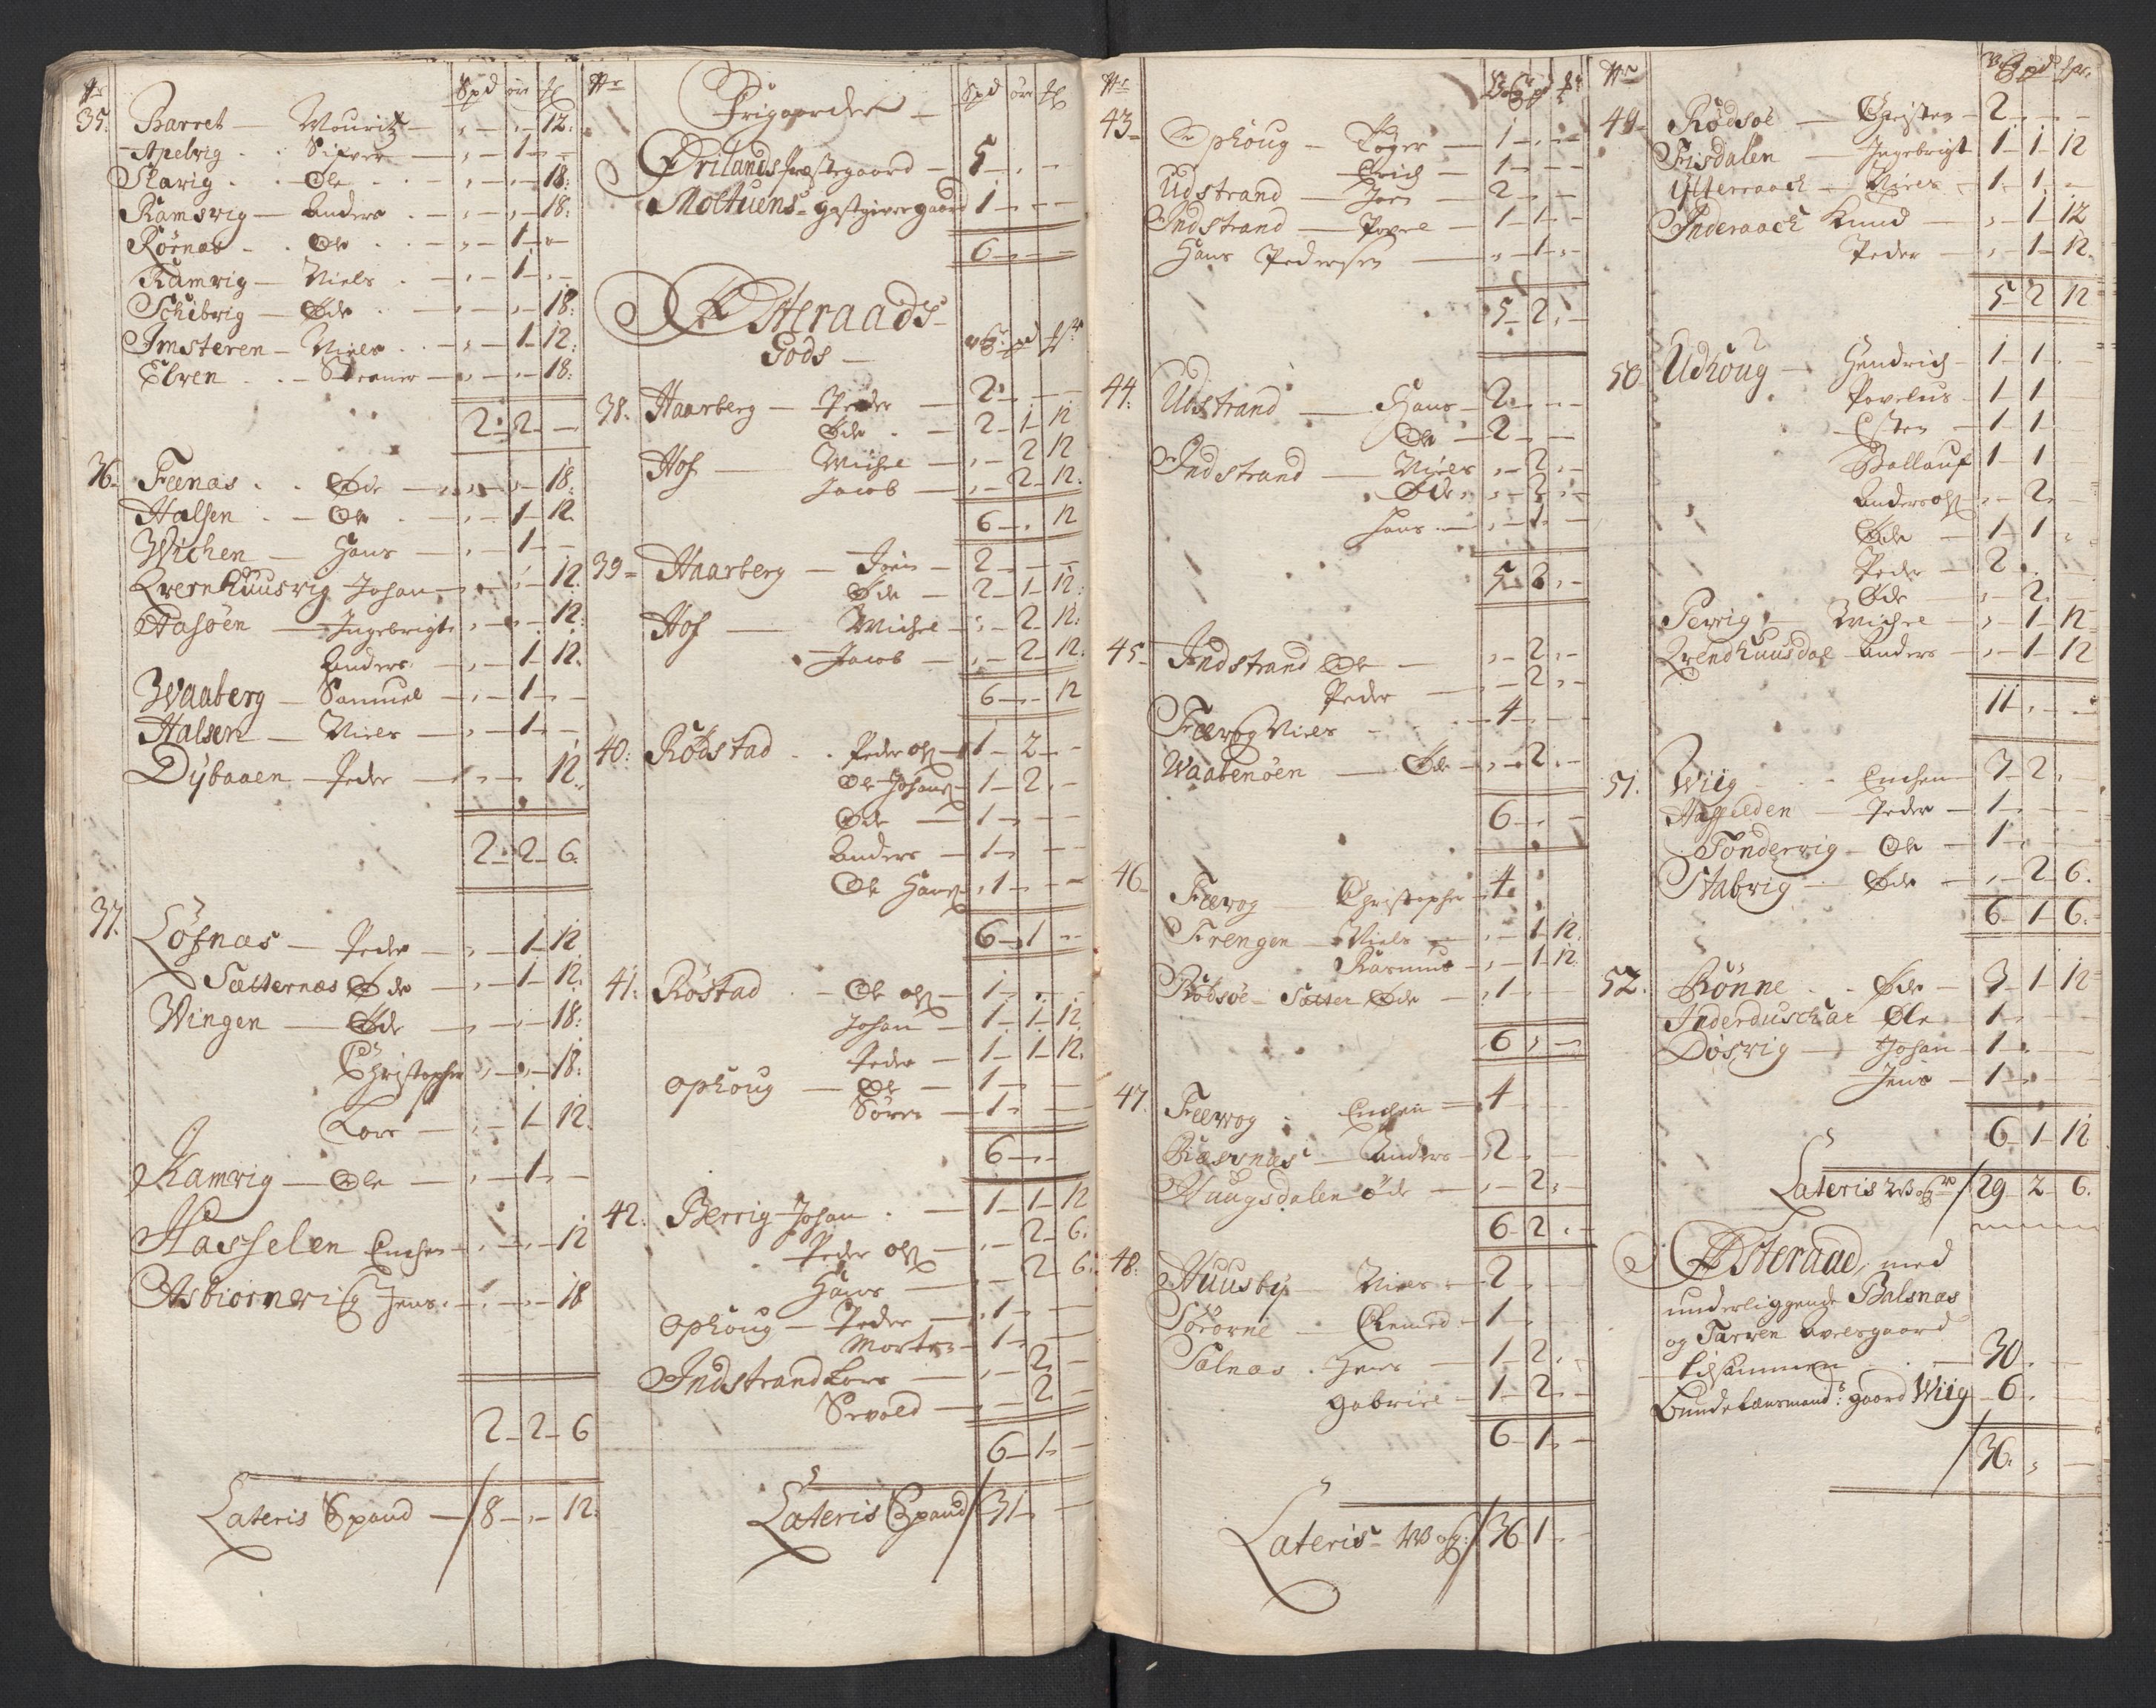 Nr Spd öre
35. Barret — Mouritz — „ — „ — 12:
Apelvig . . Sifver — „ — 1 — —
Slavig . . Ole . . „ — „ — 18:
Ramsvig — Anders . — „ — „ — 18:
Rörnas . . Ole . . — „ — 1 — „
Ramvig — Niels . — „ — 1 — „
Schibvig — Øde . . — „ — „ — 18:
Imsteren — Niels . . — „ — 1 — 12:
Elven . . — — „ — „ — 18:
2 — 2 — —
36. Feenas . . Øde — „ — „ — 18:
Halsen . — Ole . — „ — 1 — 12.
Wichen — Hans — „ — 1 — —
Qvernhuusvig Johan — „ — „ — 12.
Hasöen — Ingebrigt „ — „ — 12:
Anders — „ — 1 — 12.
Waaberg — Samuel — „ — 1 — —
Halsen — Niels — „ — 1 — —
Dÿbaaen — Peder — „ — 12.
2 — 2 — 6.
37. Löfnas — Peder — „ — 1 — 12
Sætternæs Øde — „ — 1 — 12.
Wingen — Øde — „ — „ — 18:
Christopher „ — „ — 18:
Lars — „ — 1 — 12.
Kamvig — Ole — „ — 1 — —
Hasselen Enchen — „ — „ — 12
Asbiörnvig Jens . — „ — „ — 18
2 — 2 — 6
Lateris Spand — / 8 — „ — 12:
Nr Frigaarder — Spd öre
Örilands præstegaard — 5 — „ —
Moltuens gestgivergaard 1 — — —
6 — — —
Østeraads
Gods —
38. Haarberg — Peder — 2 — —
Øde . — 2 — 1 — 12
Hof — Michel — „ — 2 12
Jacob — „ — 2 — 12.
6 — „ 12
39 — Haarberg — Jören — 2 — — —
Øde — 2 — 1 — 12:
Hof — Michel — „ — 2 — 12:
Jacob — „ — 2 — 12.
6 — „ 12
40: Rödstad . . Peder olß — 1 — 2 — —
Ole Johanß — 1 — 2 — —
Øde — 1 — — —
Anders — 1 — — —
Ole Hanß „ 1 — — —
6 — 1 — —
41. Röstad . — Ole olß — 1 — „ —
Johan — 1 — 1 — 12.
Peder — 1 — 1 — 12.
Ophoug — Ole — 1 — —
Sören — 1 — —
6 — — —
42. Berrig Johan . — 1 — 1 — 12
Peder olß — „ — 2 — 6.
Hans — „ — 2 — 6:
Ophoug — Peder — „ 1 — —
Morten — 1 — —
Indstrand Lars — „ — 2 —
Sivald — „ — 2 —
6 — 1 — —
Lateris Spand / 31 — —
Nr
43 — Ophoug — Röger — 1 — „ —
Erich — 1 — — —
Udstrand — Jörn — 2 — „ —
Indstrand — Povel — 1 — 1 — —
Hans Pedersen — „ — 1 — „
5 — 2 „ —
44: Udstrand — Hans — 2 — „ —
Ole — 2 — —
Indstrand — Niels „ — 2 „ —
Øde „ „ — 2 „ —
Hans — „ — 1 — —
5 — 2 „ —
45 — Indstrand Ole — „ — 2 „ —
Peder — „ — 2 „ —
Feevog Niels — 4 — —
Waabenöen — Øde — „ — 2 „ —
6 — „ —
46 — Feevog — Christopher 4 „
Frengen — Niels — „ — 1 — 12:
Rasmus — „ — 1 — 12.
Rödsöe — Sætter Øde — „ 1 — —
6 „ —
47. Feevog — Enchen — 4 — —
Biørnæs — Anders — 2 — —
Haugsdalen öde — „ — 2 „ —
6 2 „ —
48. Huusby — Niels — 2 — —
Söeörne — — 1 — —
Solnæs . Jens — 1 — 2 „ —
Gabriel — 1 — 2 — —
6 — 1 „ —
Lateris — / 36 1 „ —
Nr
49 — Rödsöe — Christen — 2 — — —
Frisdalen — Ingebrigt 1 — 1 — 12
Ytteraack — Niels — 1 — 1 — —
Inderaack Knud — „ — 1 — 12
Peder — „ — 1 — 12.
5 — 2 12
50 Udhoug — Hendrich — 1 — 1 — —
Povelus — 1 — 1 —
Esten — 1 — 1 —
Ballauf 1 — 1 —
Andersolß „ — 2 —
Øde — 1 — 1 „
Peder — 2 „ —
Øde — „ — 2 —
Berrig — Michel — „ — 1 — 12 —
Qvendhuusdal — Anders — „ — 1 — 12
11 „ — „
51. Wiig . — Enchen — 3 — 2 „ —
Hafelden — Peder — 1 — — —
Töndervig — Ole — 1 — —
Stabvig — Øde — „ — 2 — 6.
6 — 1 — 6.
52. Rönne . — Øde — 3 — 1 — 12
Inderduschar Ole — 1 — —
Dösvig — Johan — 1 — —
Jens — 1 — —
6 — 1 — 12
Lateris / 29 — 2 — 6.
Østeraad, med
underliggende Balsnæs
og Tarven avelsgaard
tilsammen — 30. —
Bundelænsmands gaard Wiig — 6 — —
/ 36. „ —